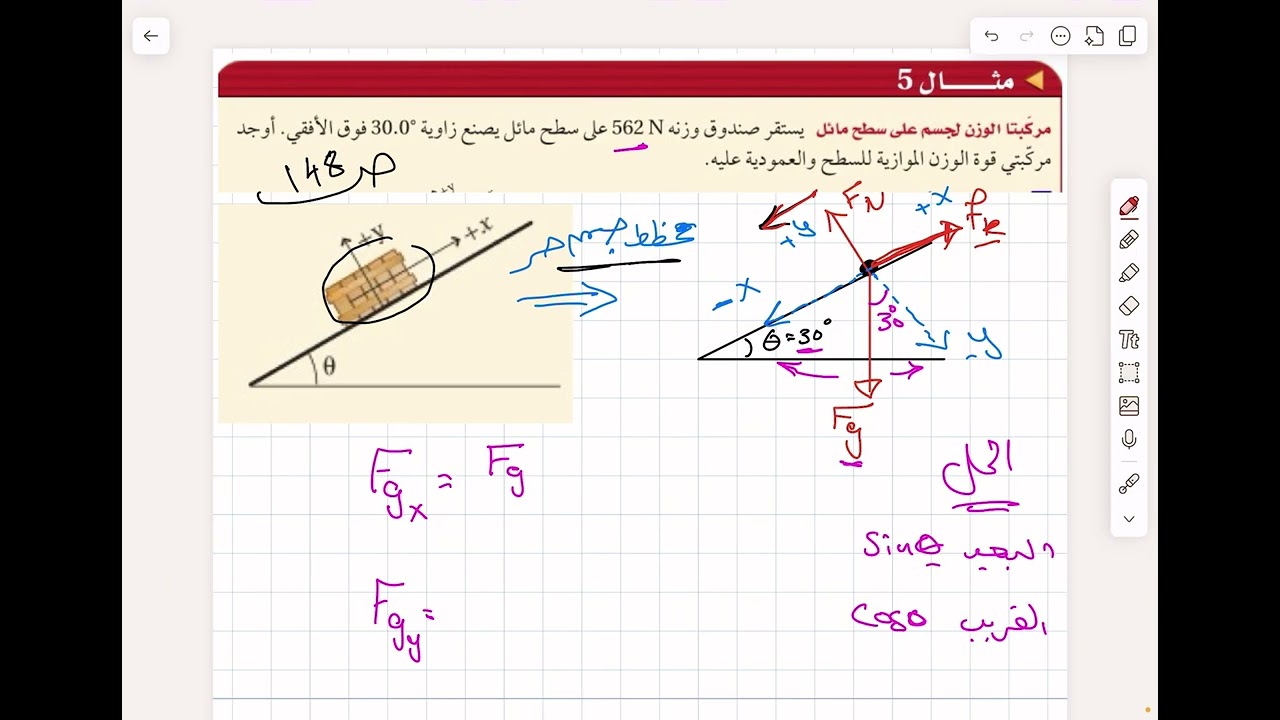 مثـــال 5
مركبتا الوزن لجسم على سطح مائل يستقر صندوق وزنه 562 N على سطح مائل يصنع زاوية 30.0° فوق الأفقي. أوجد
مركّبتي قوة الوزن الموازية للسطح والعمودية عليه.
ص 148
+y
+y
+x
θ
مخطط الجسم الحر
+y
FN
+x
fk
-x
θ=30°
30°
-y
Fg
Fgx = Fg
الحل
البعيد Sinθ
Fgy =
القريب Cosθ
Tt